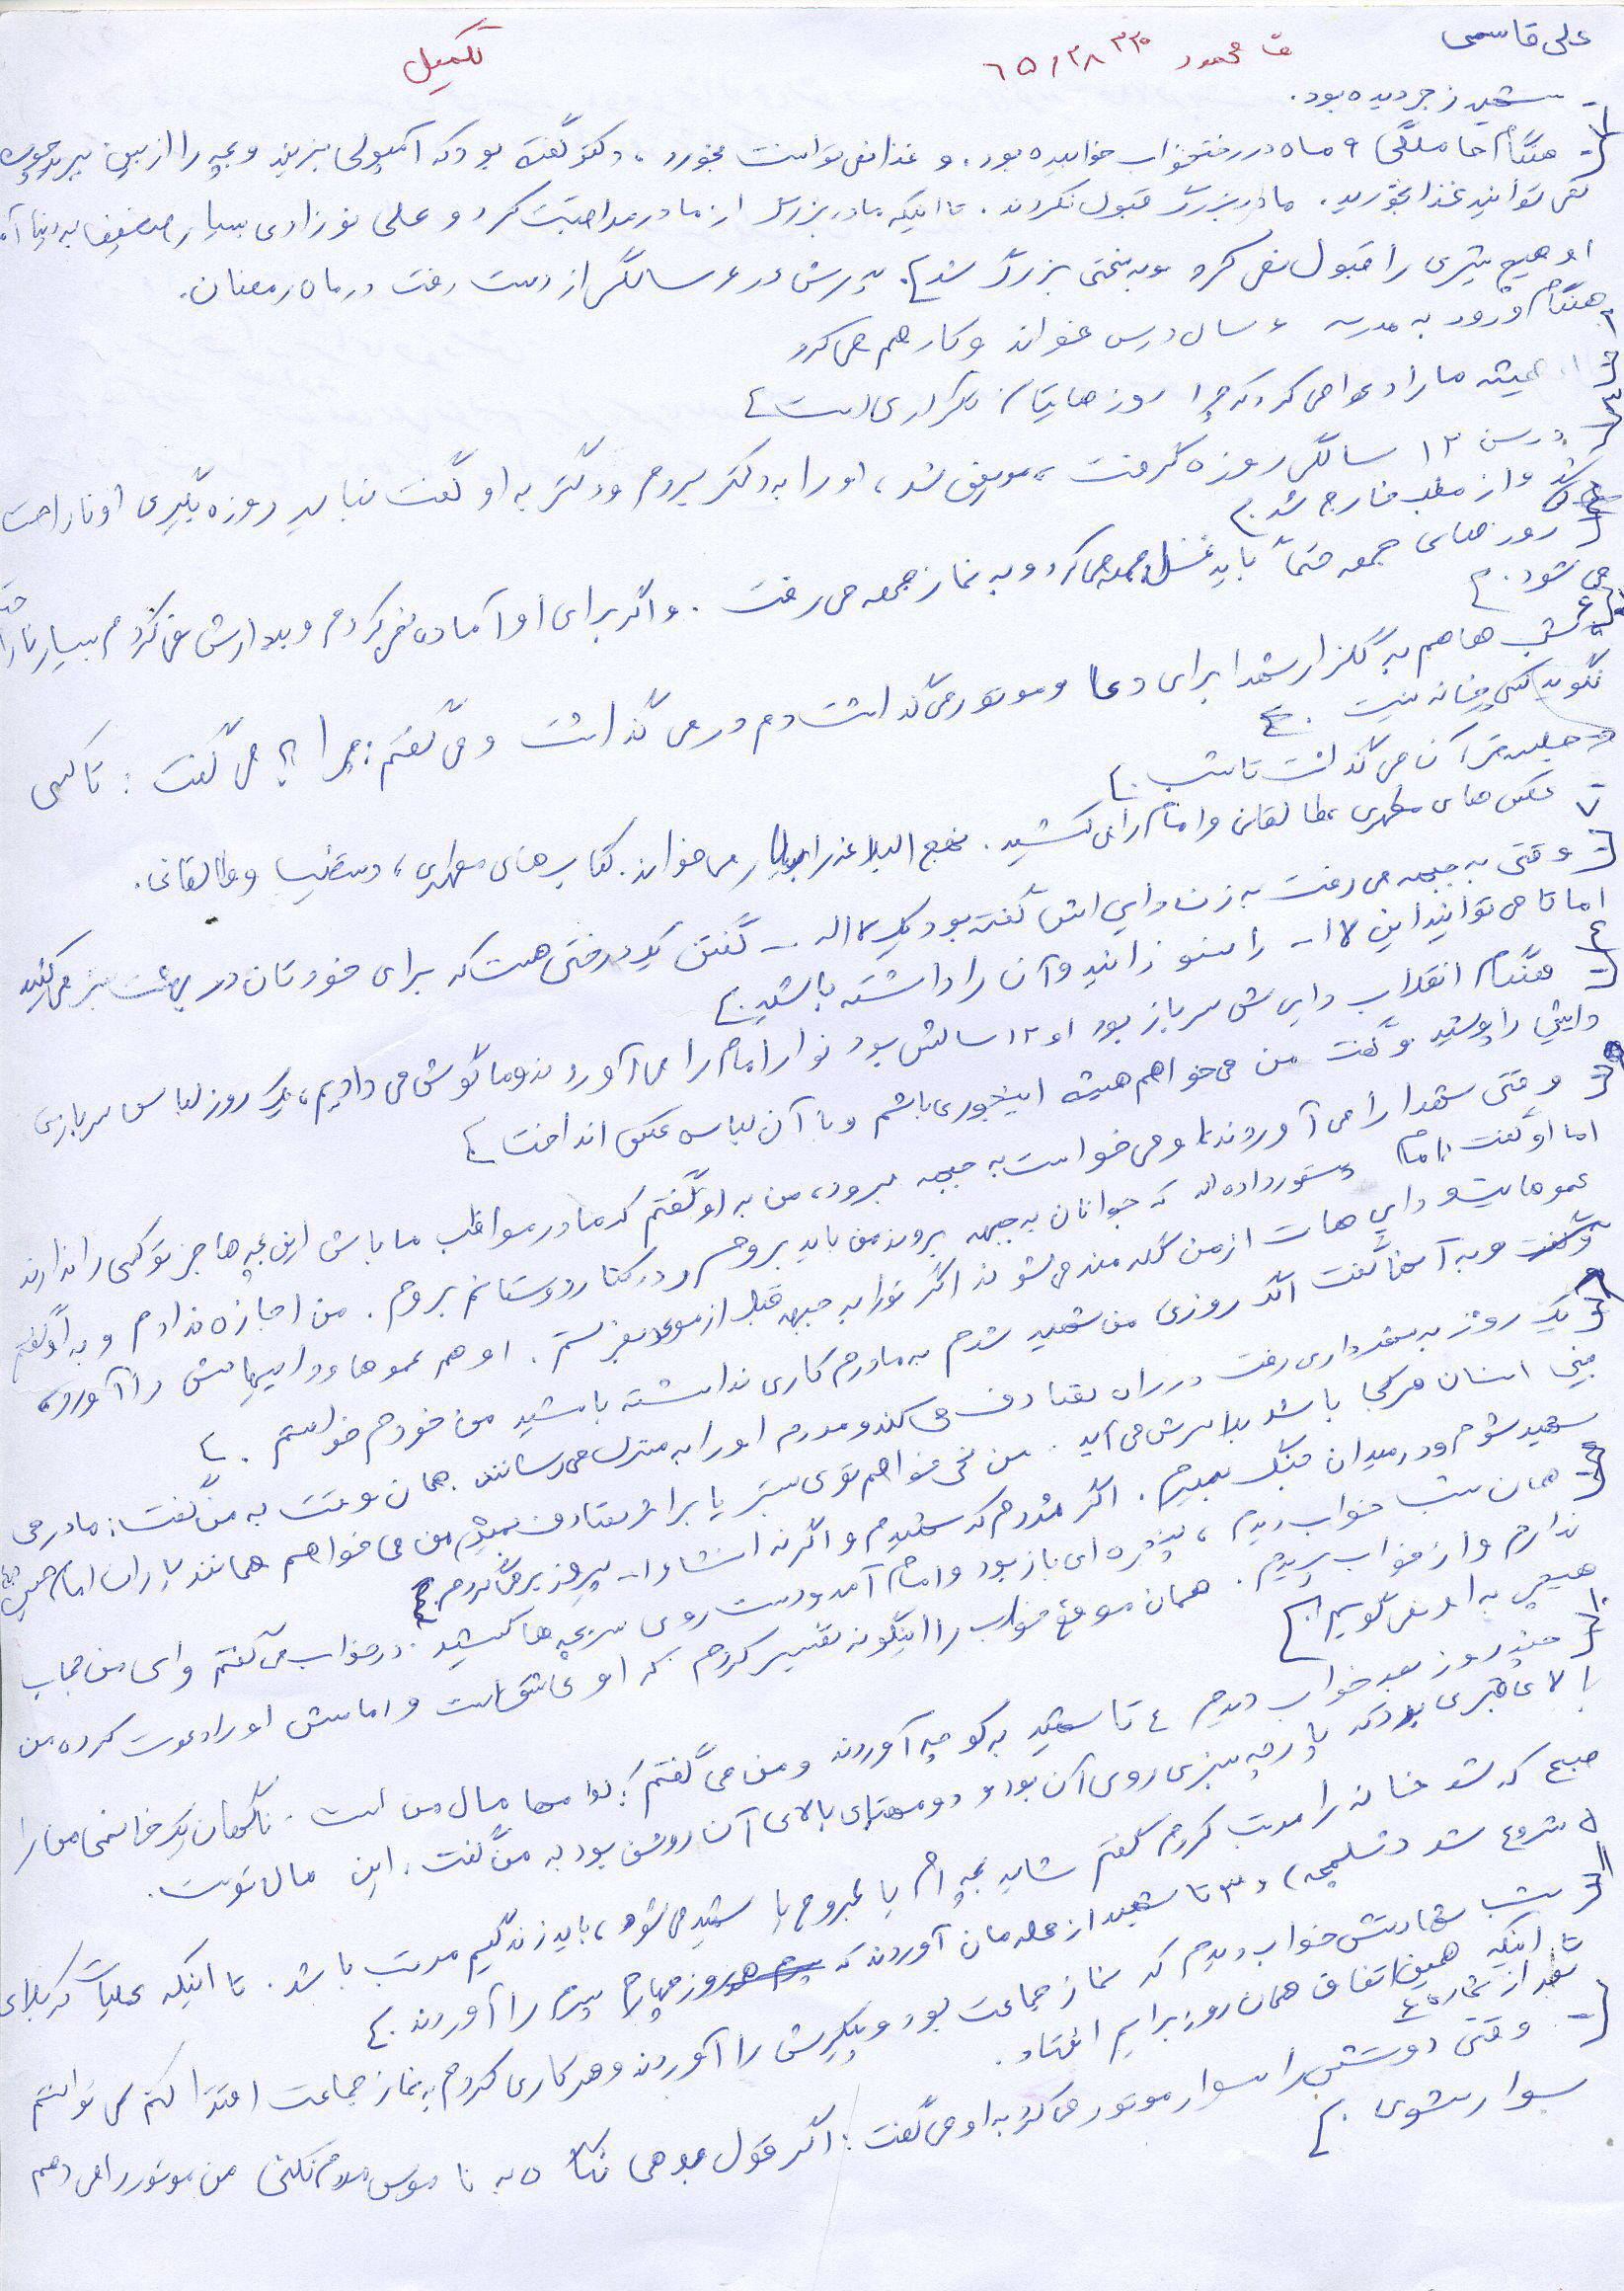 علی قاسمی
ف محمود
تکمیل
شهید زجر دیده بود.
هنگام حاملگی ۹ ماه در رختخواب خوابیده بود. و غذا نمی توانست بخورد، دکتر گفته بود که آمپولی بزنید و بچه را از بین ببرید چون
نمی توانید غذا بخورید. مادربزرگ قبول نکردند. تا اینکه مادربزرگ از مادر مراقبت کرد و علی نوزادی بسیار ضعیف به دنیا آمد
او هیچ شیری را قبول نمی کرد و به سختی بزرگ شد}. پدرش در ۶ سالگی از دست رفت در ماه رمضان.
۲ هنگام ورود به مدرسه ۶ سال درس خواند و کار هم می کرد
همیشه ما را دعوا می کرد که چرا روزهایتان تکراری است}
۳ در سن ۱۲ سالگی روزه گرفت، مریض شد، او را به دکتر بردم و دکتر به او گفت نباید روزه بگیری او ناراحت
شد و از مطب خارج شد.}
روزهای جمعه حتماً باید غسل جمعه می کرد و به نماز جمعه می رفت. و اگر برای او آماده نمی کردم و بیدارش نمی کردم بسیار ناراحت
می شود.}
شب ها هم به گلزار شهدا برای دعا و موتور می گذاشت دم در می گذاشت و می گفتم: چرا؟ می گفت: تا کسی
نگوید کسی خانه نیست.}
جلسه قرآن می گذاشت تا شب.}
۷ عکس های مطهری، طالقانی و امام را می کشید. نهج البلاغه را بسیار می خواند. کتاب های مطهری، دستغیب و طالقانی.
وقتی به جبهه می رفت به زن دایی اش گفته بود یک لا اله ... گفتن یک درختی هست که برای خودتان در بهشت سبز می کنید
اما تا می توانید این لا ا... را نسوزانید و آن را داشته باشید.}
هنگام انقلاب دایی ش سرباز بود او ۱۲ سالش بود نوار امام را می آوردند و ما گوش می دادیم، یک روز لباس سربازی
دایش را پوشید و گفت من می خواهم همیشه اینجوری باشم و با آن لباس عکس انداخت}
وقتی شهدا را می آوردند، او می خواست به جبهه برود، من به او گفتم که مادر مواظب ما باش این بچه ها جز تو کسی را ندارند
اما او گفت: امام دستور داده اند که جوانان به جبهه بروند من باید بروم و در کنار دوستانم بروم. من اجازه ندادم و به او گفتم
عموهایت و دایی هات از من گله مند می شوند اگر تو را به جبهه قبل از موعد بفرستم. او هم عموها و داییهایش را آورد،
و به آنها گفت اگر روزی من شهید شدم به مادرم کاری نداشته باشید من خودم خواستم.}
۸ یک روز به شهرداری رفت در راه تصادف می کند و مردم او را به منزل می رسانند. همان وقت به من گفت: مادر می
بینی انسان هر کجا باشد بلا سرش می آید. من نمی خواهم توی بستر یا بر اثر تصادف بمیرم من می خواهم همانند یاران امام حسین
شهید شوم و در میدان جنگ بمیرم. اگر مُردم که شهیدم و اگر نه انشاءا... پیروز برمی گردم.}
۹ همان شب خواب دیدم، پنجره ای باز بود و امام آمد و دست روی سر بچه ها کشید. در خواب می گفتم وای من حجاب
ندارم و از خواب پریدم. همان موقع خواب را اینگونه تعبیر کردم که او عاشق است و امامش او را دعوت کرده من
هیچی به او نمی گویم.}
۱۰ چند روز بعد خواب دیدم ۴ تا شهید به کوچه آوردند و من می گفتم: کدامها مال من است. ناگهان یک خانمی من را
بالای قبری برد که پارچه سبزی روی آن بود و دو مهتابی بالای آن روشن بود به من گفت، این مال توست.
صبح که شد خانه را مرتب کردم گفتم شاید بچه ام یا مجروح یا شهید می شود، باید زندگیم مرتب باشد. تا اینکه عملیات کربلای
۵ شروع شد (شلمچه)، و ۳ تا شهید از محله مان آوردند که روز چهارم پسرم را آوردند.}
۱۱ شب شهادتش خواب دیدم که نماز جماعت بود و پیکرش را آوردند و هر کاری کردم به نماز جماعت اقتدا کنم نمی توانستم
تا اینکه همین اتفاق همان روز برایم افتاد.
بعد از شماره ۴
وقتی دوستش را سوار موتور می کرد به او می گفت: اگر قول بدهی نگاه به ناموس مردم نکنی من موتور را می دهم
سوار شوی.}